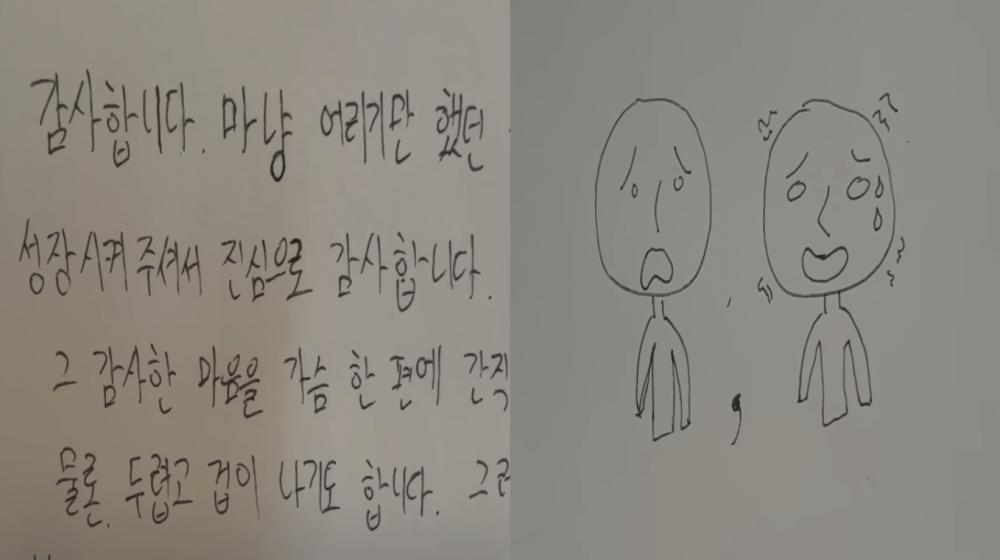 감사합니다. 마냥 어리기만 했던
성장시켜 주셔서 진심으로 감사합니다.
그 감사한 마음을 가슴 한 편에 간직
물론, 두렵고 겁이 나기도 합니다.